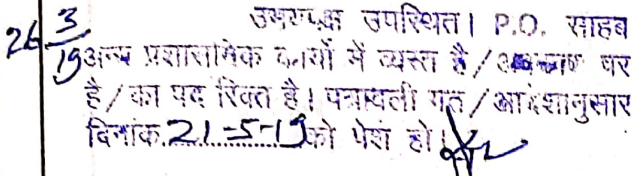 26/3/19 उभयपक्ष उपस्थित। P.O. साहब
अन्य प्रशासनिक कार्यो में व्यस्त है/अवकाश पर
है/का पद रिक्त है। पत्रावली गत/आदेशानुसार
दिनांक.21-5-19को पेश हो।